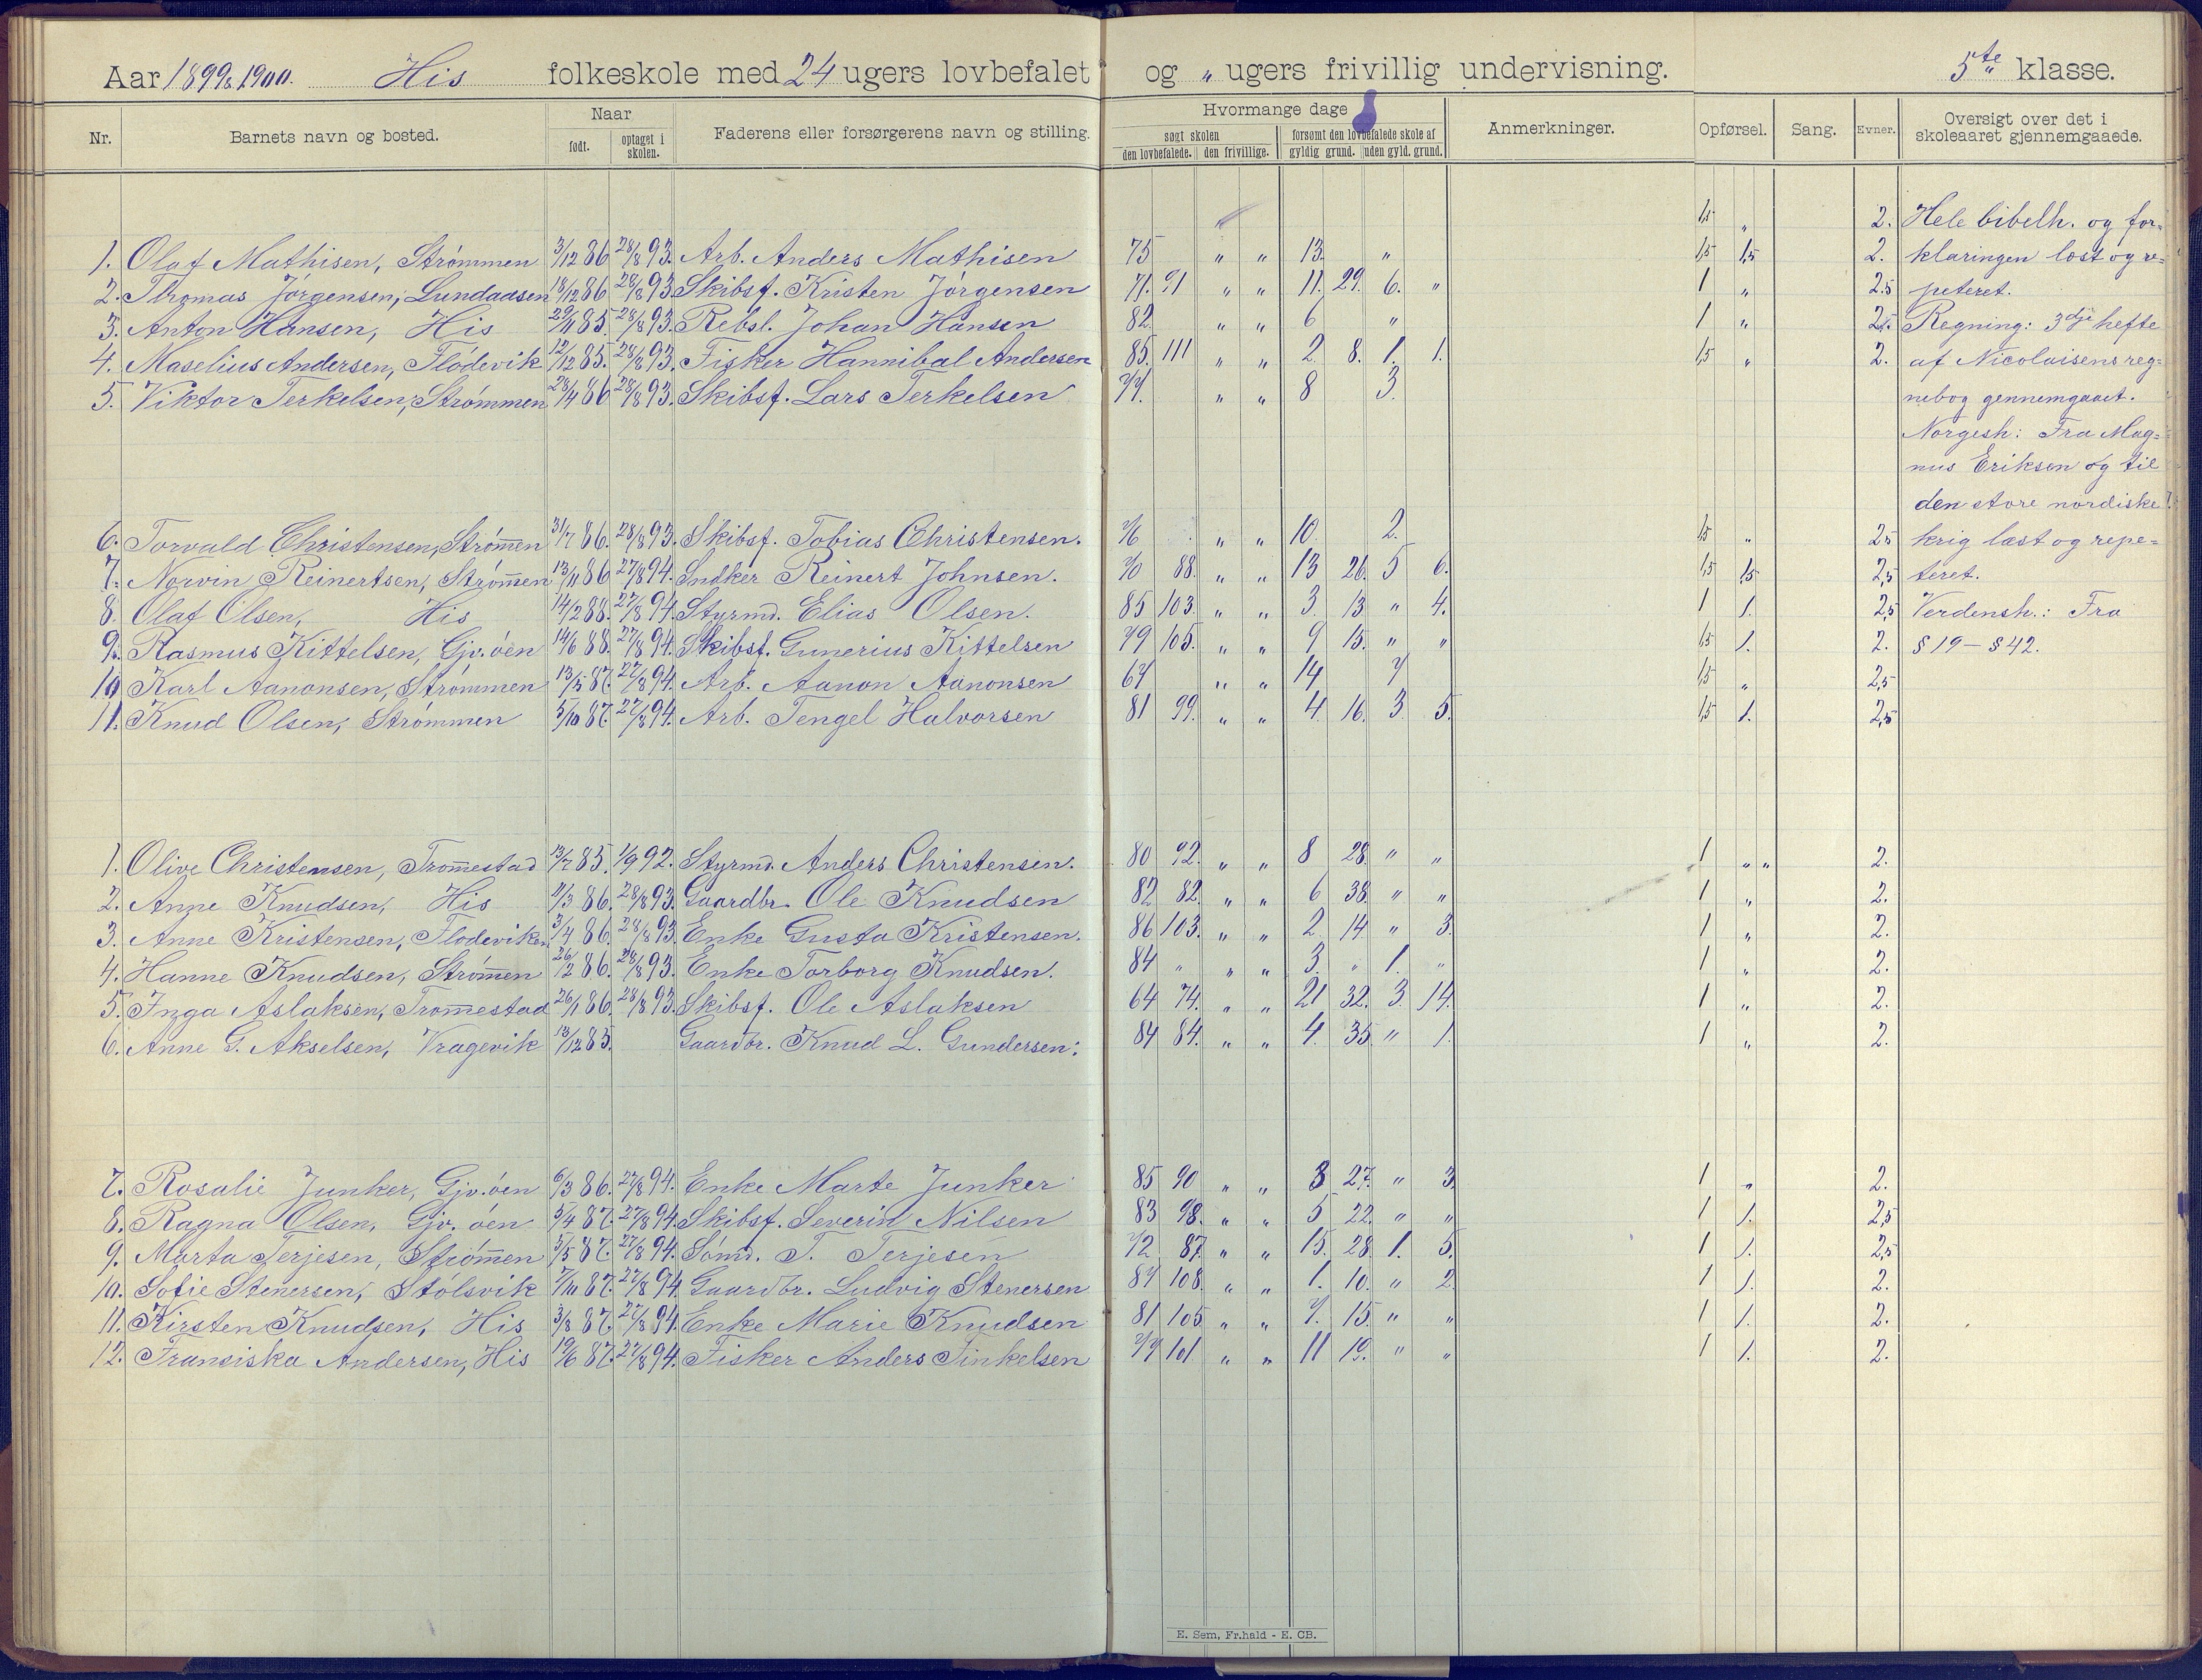 Aar 1899 & 1900. His folkeskole med 24 ugers lovbefalet og „ ugers frivillig undervisning. 5te klasse.
Nr. Barnets navn og bosted. Naar født. optaget i skolen. Faderens eller forsørgerens navn og stilling. Hvormange dage søgt skolen den lovbefalede. den frivillige. forsømt den lovbefalede skole af gyldig grund. uden gyld. grund. Anmerkninger. Opførsel. Sang. Evner. Oversigt over det i skoleaaret gjennemgaaede.
1,5 „ 2. Hele bibelh. og for=
1. Olaf Mathisen, Strømmen 3/12 86 28/8 93. Arb. Anders Mathisen 75 „ „ 13. „ 1,5 1,5 2. klaringen læst og re=
2. Thomas Jørgensen, Lundaasen 18/12 86 28/8 93 Skibsf. Kristen Jørgensen 71. 91 „ „ 11. 29. 6. „ 1 „ 2.5 peteret.
3. Anton Hansen, His 29/11 85. 28/8 93. Rebsl. Johan Hansen 82. „ „ 6 „ 1 „ 2,5. Regning: 3dje hefte
4. Maselius Andersen, Flødevik 12/12 85. 28/8 93. Fisker Hannibal Andersen 85. 111 „ „ 2. 8. 1. 1. 1,5 „ 2. af Nicolaisens reg=
5. Viktor Terkelsen, Strømmen 28/4 86 28/8 93. Skibsf. Lars Terkelsen 77. „ „ 8 3. nebog gennemgaaet.
Norgesh: Fra Mag=
nus Eriksen og til
den store nordiske
6. Torvald Christensen, Strøm̅en 31/7 86. 28/8 93. Skibsf. Tobias Christensen. 76 „ „ 10. 2. 1,5 „ 2,5 krig læst og repe=
7. Norvin Reinertsen, Strøm̅en 13/11 86 27/8 94. Sndker Reinert Johnsen. 70 88. „ „ 13 26. 5 6. 1,5 1,5 2,5 teret.
8. Olaf Olsen, His 14/2 88. 27/8 94. Styrmd. Elias Olsen. 85 103. „ „ 3. 13 „ 4. 1 1. 2,5 Verdensh.: Fra
9. Rasmus Kittelsen, Gjv.øen 14/6 88. 27/8 94. Skibsf. Gunerius Kittelsen 79 105. „ „ 9 15. „ „ 1,5 1. 2. § 19 – § 42.
10 Karl Aanonsen, Strømmen 13/5 87. 27/8 94. Arb. Aanon Aanonsen 67 „ „ 14 7 1,5 „ 2,5
11. Knud Olsen, Strømmen 5/10 87. 27/8 94. Arb. Tengel Halvorsen 81 99. „ „ 4. 16. 3. 5. 1,5 1. 2,5
1. Olive Christensen, Trom̅estad 13/7 85. 1/9 92. Styrmd. Anders Christensen. 80 92. „ „ 8 28. „ „ 1 „ „ 2.
2. Anne Knudsen, His 11/3 86. 28/8 93. Gaardbr. Ole Knudsen 82 82. „ „ 6 38. „ „ 1 „ 2.
3. Anne Kristensen, Flødeviken 3/4 86. 28/8 93 Enke Gusta Kristensen. 86 103. „ „ 2. 14 „ 3. 1 „ 2.
4. Hanne Knudsen, Strøm̅en 26/12 86. 28/8 93. Enke Torborg Knudsen. 84 „ „ „ 3. „ 1. „ 1 „ 2.
5. Inga Aslaksen, Trom̅estad 26/1 86. 28/8 93. Skibsf. Ole Aslaksen 64 74. „ „ 21 32. 3. 14. 1 „ 2.
6. Anne G. Akselsen, Vragevik 13/12 85. Gaardbr. Knud L. Gundersen. 84 84. „ „ 4. 35. „ 1. 1 „ 2.
7. Rosalie Junker, Gjv.øen 6/3 86. 27/8 94. Enke Marte Junker 85 90 „ „ 3 27. „ 3. 1 „ 2.
8. Ragna Olsen, Gjv.øen 5/4 87. 27/8 94. Skibsf. Severin Nilsen 83 98. „ „ 5 22. „ „ 1 1. 2,5
9. Marta Terjesen, Strøm̅en 5/5 87. 27/8 94. Sømd. T. Terjesen 72 87. „ „ 15. 28. 1. 5. 1 1. 2,5
10. Sofie Stenersen, Stølsvik 7/10 87. 27/8 94. Gaardbr. Ludvig Stenersen 87 108. „ „ 1. 10. „ 2. 1 1. 2.
11. Kirsten Knudsen, His 3/8 87. 27/8 94. Enke Marie Knudsen 81 105 „ „ 7. 15. „ „ 1 1. 2.
12. Fransiska Andersen, His 19/6 87. 27/8 94. Fisker Anders Tinkelsen 77 101 „ „ 11 19. „ „ 1 1. 2.
E. Sem, Fr.hald - E. CB.